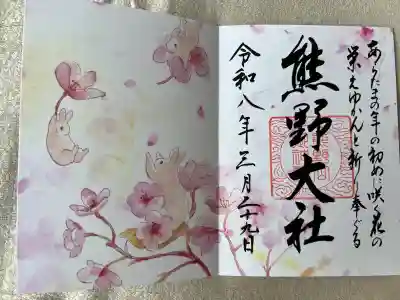 あらたまの年の初めに咲く花の
栄えゆかんと祈り奉る
熊野大社
令和八年三月二十九日